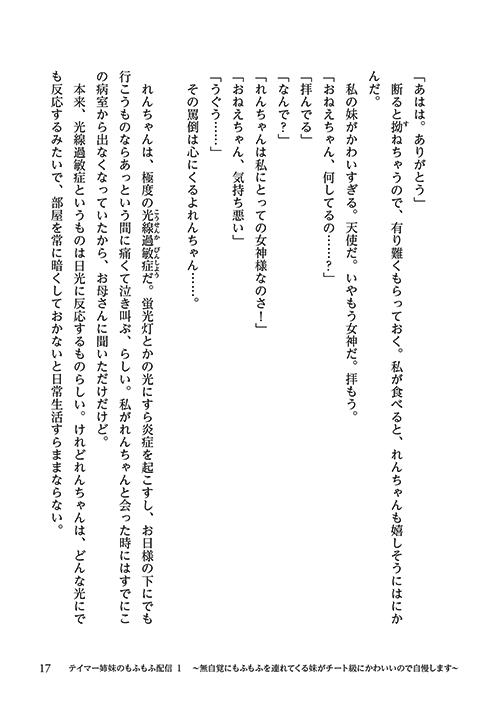 「あはは。ありがとう」
断ると拗ねちゃうので、有り難くもらっておく。私が食べると、れんちゃんも嬉しそうにはにか
んだ。
私の妹がかわいすぎる。天使だ。いやもう女神だ。拝もう。
「おねえちゃん、何してるの……？」
「拝んでる」
「なんで？」
「れんちゃんは私にとっての女神様なのさ！」
「おねえちゃん、気持ち悪い」
「うぐう……」
その罵倒は心にくるよれんちゃん……。
れんちゃんは、極度の光線過敏症だ。蛍光灯とかの光にすら炎症を起こすし、お日様の下にでも
行こうものならあっという間に痛くて泣き叫ぶ、らしい。私がれんちゃんと会った時にはすでにこ
の病室から出なくなっていたから、お母さんに聞いただけだけど。
本来、光線過敏症というものは日光に反応するものらしい。けれどれんちゃんは、どんな光にで
も反応するみたいで、部屋を常に暗くしておかないと日常生活すらままならない。
17 テイマー姉妹のもふもふ配信 1 ～無自覚にもふもふを連れてくる妹がチート級にかわいいので自慢します～